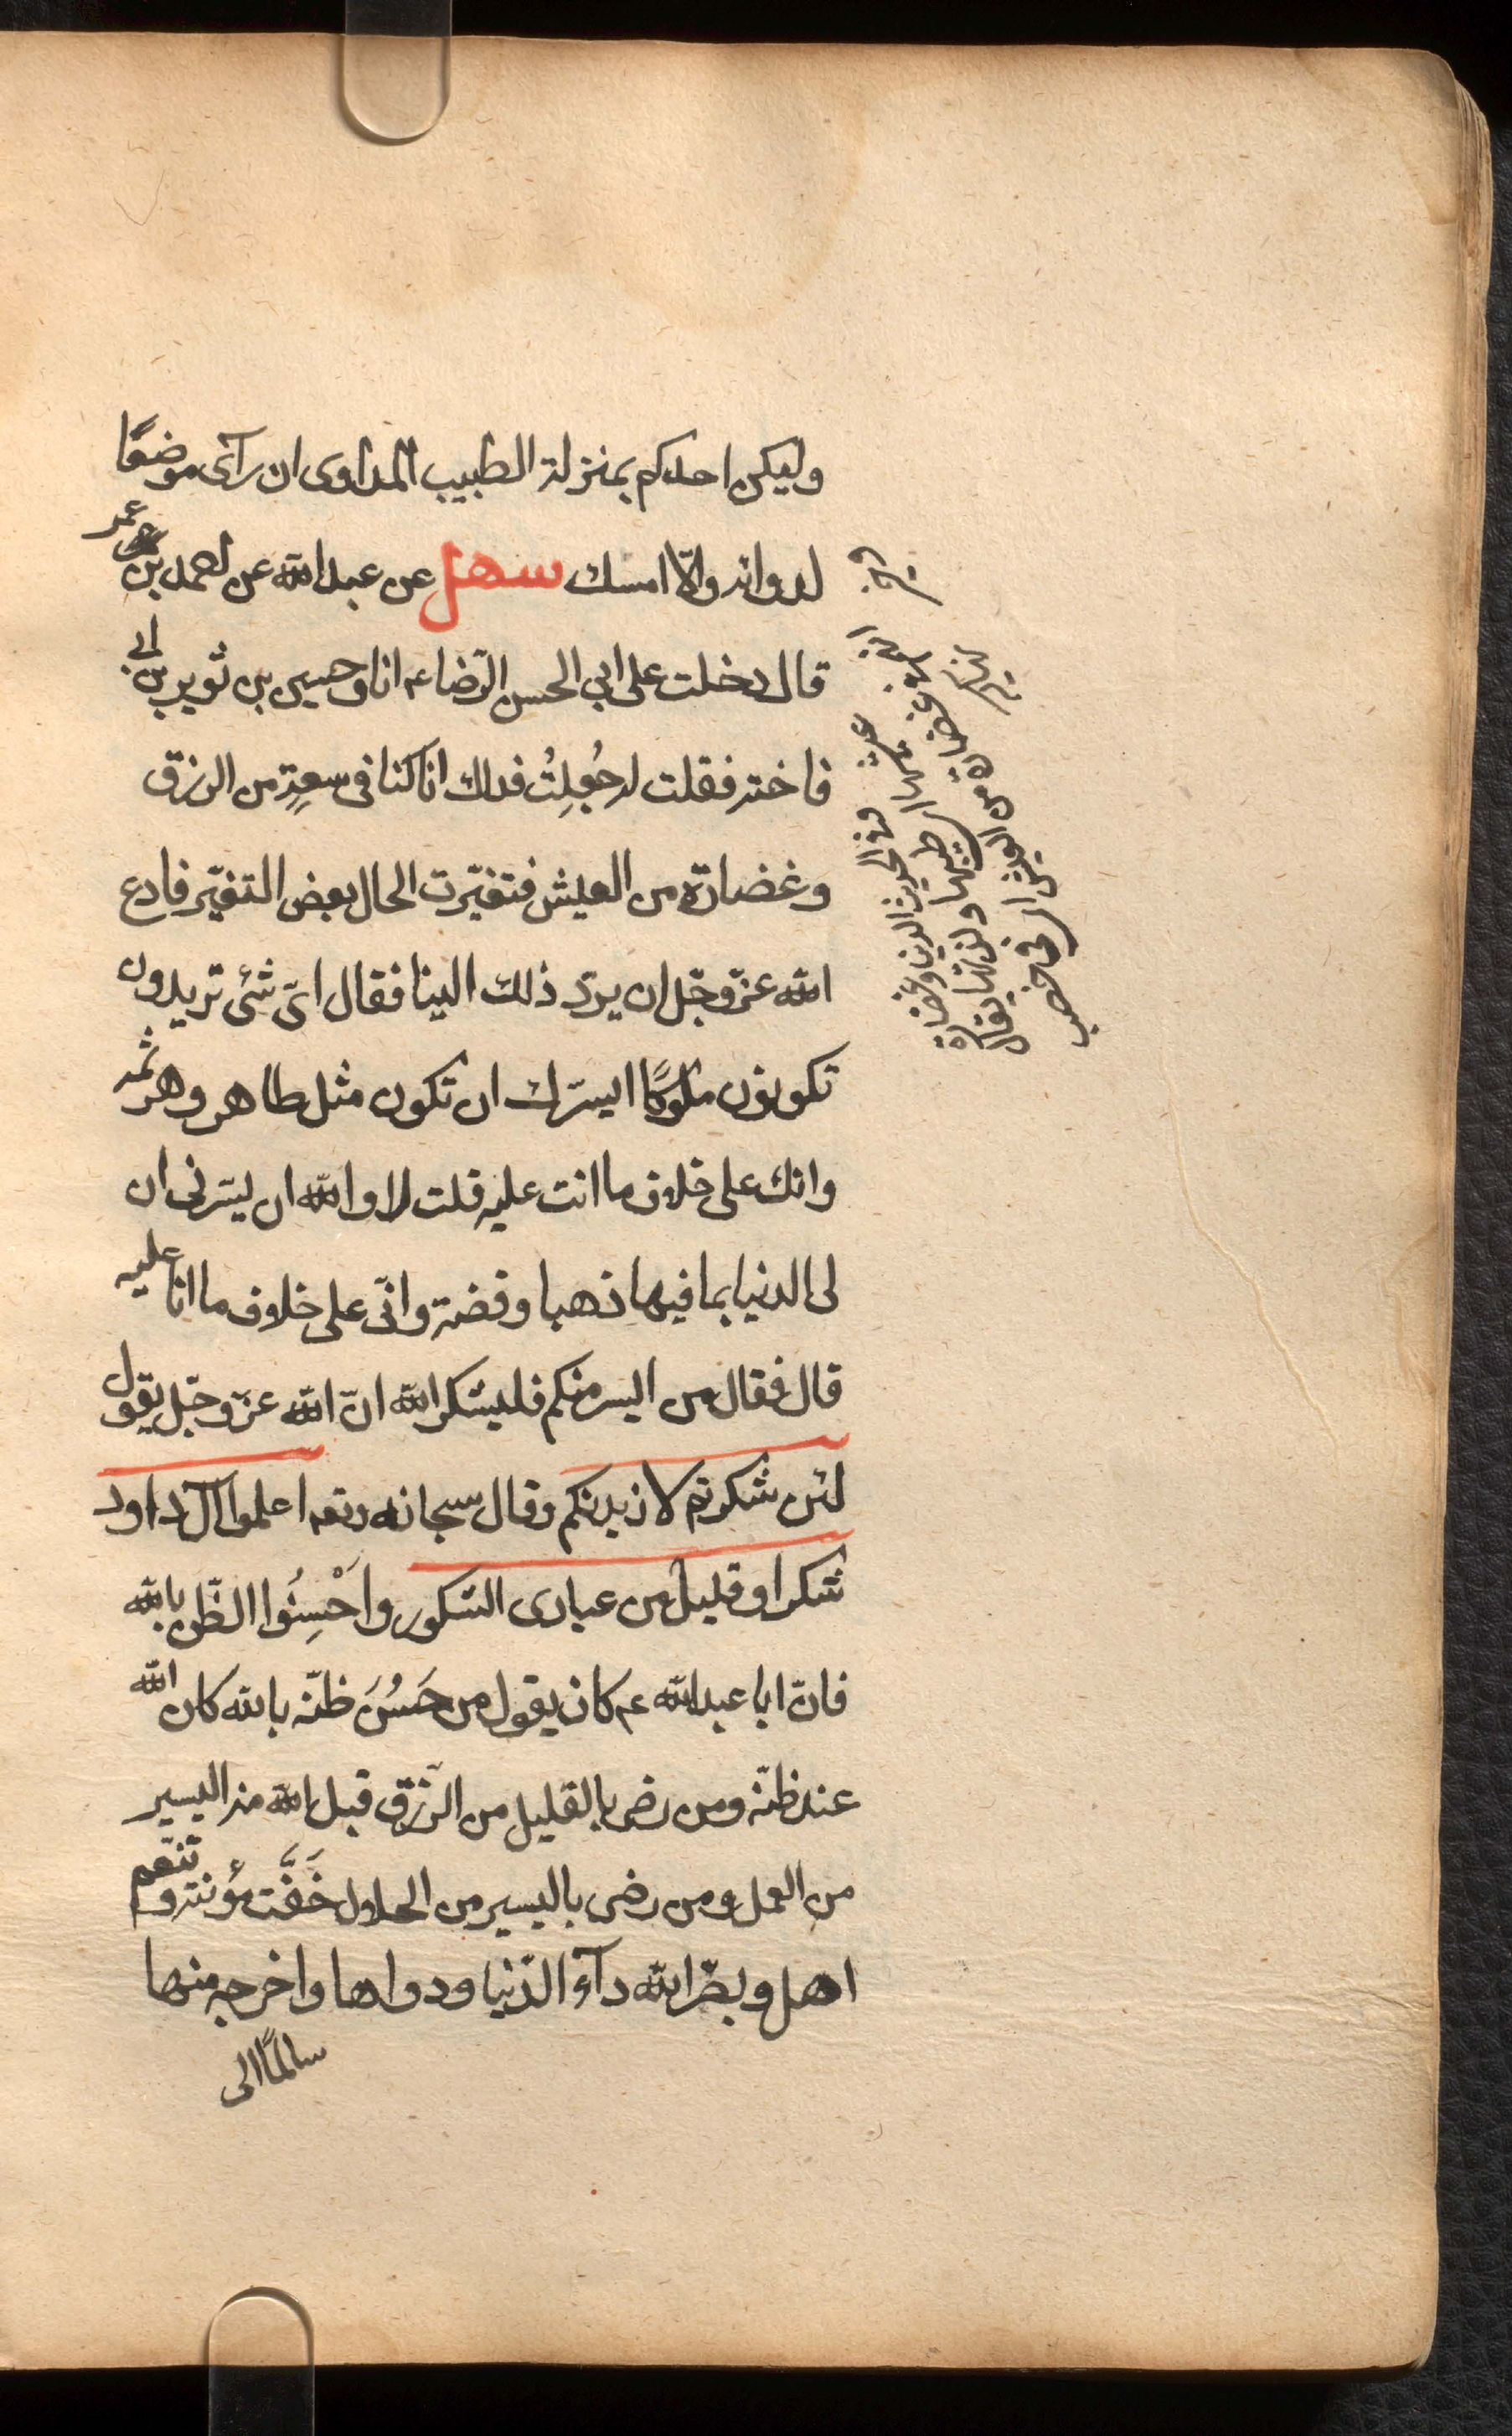 وليكن احدكم بمنزلة الطبيب المداوى ان رآى موضعًا
لدوائه والّا امسك سهل عن عبد الله عن احمد بن عمر
قال دخلت على ابي الحسن الرّضا ع انا وحسين بن ثوير بن ابى
فاخته فقلت له جُعِلِتُ فداك انا كنا فى سعةٍ من الرزق
وغضارةٍ من العيش فتغيّرت الحال بعض التغيّر فادع
الله عزّ وجّل ان يردّ ذلك الينا فقال اىّ شئ تريدون
تكونون ملوكًا ايسرّك ان تكون مثل طاهر وهرثمه
وانك على خلاف ما انت عليه قلت لا والله ان يسّرنى ان
لى الدنيا بما فيها ذهبا وفضة وانّى على خلاف ما انا عليه
قال فقال من ايسر منكم فليشكر الله انّ الله عزّ وجّل يقول
لئن شكرتم لازيدنكم وقال سبحانه وتعا اعملوا آل داود
شكرا وقليل من عبادى الشكور واَحْسِنُوا الظّن بالله
فانّ ابا عبد الله ع كان يقول من حَسُنَ ظنّه بالله كان الله
عند ظنّه ومن رضى بالقليل من الرّزق قبل الله منه اليسير
من العمل ومن رضى باليسير من الحلال خَفَّت مؤنته وتنّعم
اهله وبصّر الله دآء الدّنيا ودواها واخرجه منها
سالمًا الى
غضارة
من العيش اى فى خصب